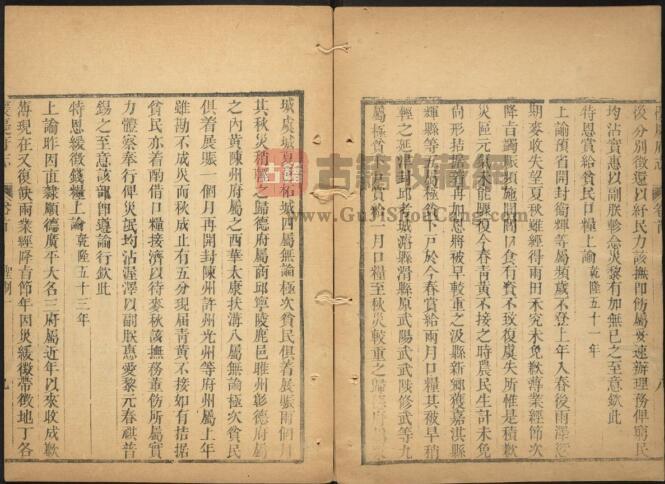 後分別徵還以紓民力該撫同飭屬妥速辦理務俾窮民
均沾實惠以副朕軫念災黎有加無已之至意欽此
特恩賞給貧民口糧上諭乾隆五十一年
上諭豫省開封衛輝等屬頻歲不登上年入春後雨澤愆
期麥收失望夏秋雖經得雨田禾究未免歉薄業經節次
降旨蠲賑頻施閭閻口食有資不致復虞失所惟是積歉
災區元氣未能驟復今春青黃不接之時農民生計未免
尚形拮据著再加恩將被旱較重之汲縣新鄉獲嘉淇縣
輝縣等五縣極次下戶於今春賞給兩月口糧其被旱稍
輕之延津封邱考城濬縣滑縣原武陽武武陟修武等九
屬極貧下戶賞給一月口糧至秋災較重之歸德府屬
城虞城夏邑柘城四屬無論極次貧民俱着展賑兩個月
其秋災稍輕之歸德府屬商邱寧陵鹿邑睢州彰德府屬
之內黃陳州府屬之西華太康扶溝八屬無論極次貧民
俱着展賑一個月再開封陳州許州光州等府州屬上年
雖勘不成災而秋成止有五分現屆青黃不接如有拮据
貧民亦着酌借口糧接濟以待麥秋該撫務董飭所屬實
力體察奉行俾災民均沾渥澤以副朕惠愛黎元春祺普
錫之至意該部即遵諭行欽此
特恩緩徵錢糧上諭乾隆五十三年
上諭昨因直隸順德廣平大名三府屬近年以來收成歉
薄現在又復缺雨業經降旨節年因災緩徵帶徵地丁各
古籍收藏网
www.GuJiShouCang.com